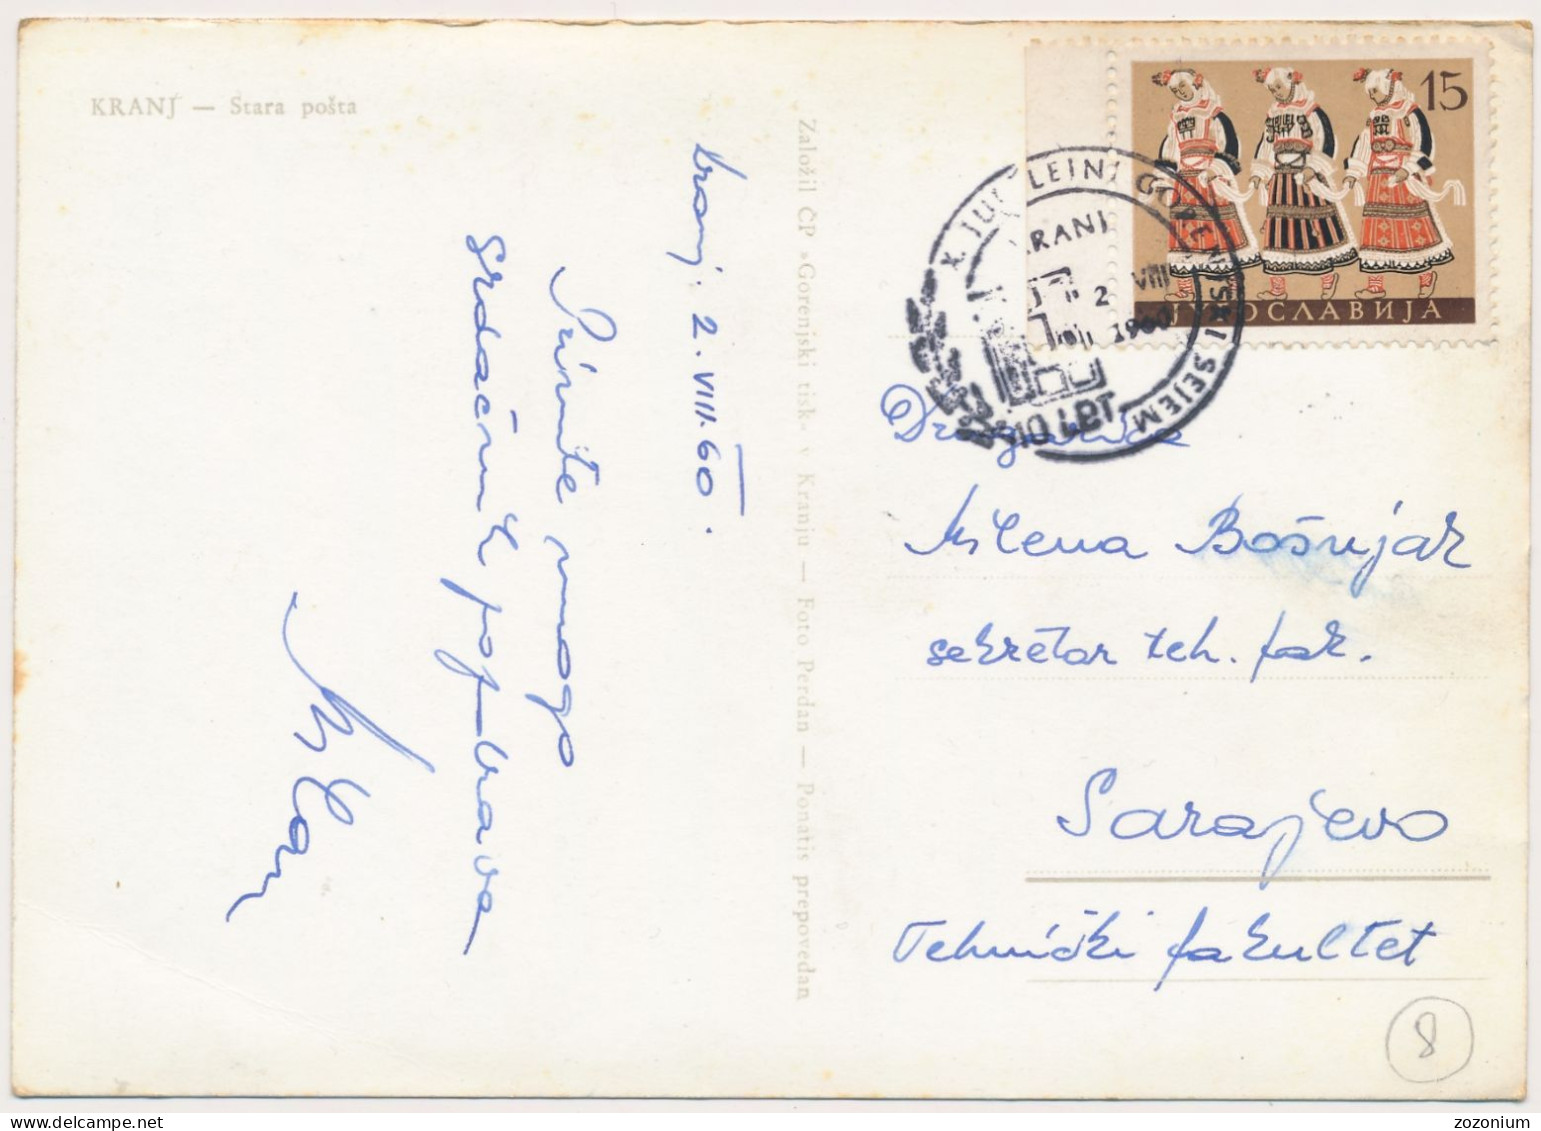 KRANJ — Stara pošta
Kranj. 2. VIII. 60.
Primite mnogo
srdačnih pozdrava
Založil ČP »Gorenjski tisk« v Kranju — Foto Perdan — Ponatis prepovedan
15
ЈУГОСЛАВИЈА
X. JUBILEJNI GORENJSKI SEJEM
KRANJ
2 VIII
1960
10 LET
Drugarica
Milena Bošnjak
sekretar teh. fak.
Sarajevo
Tehnički fakultet
8
zozonium